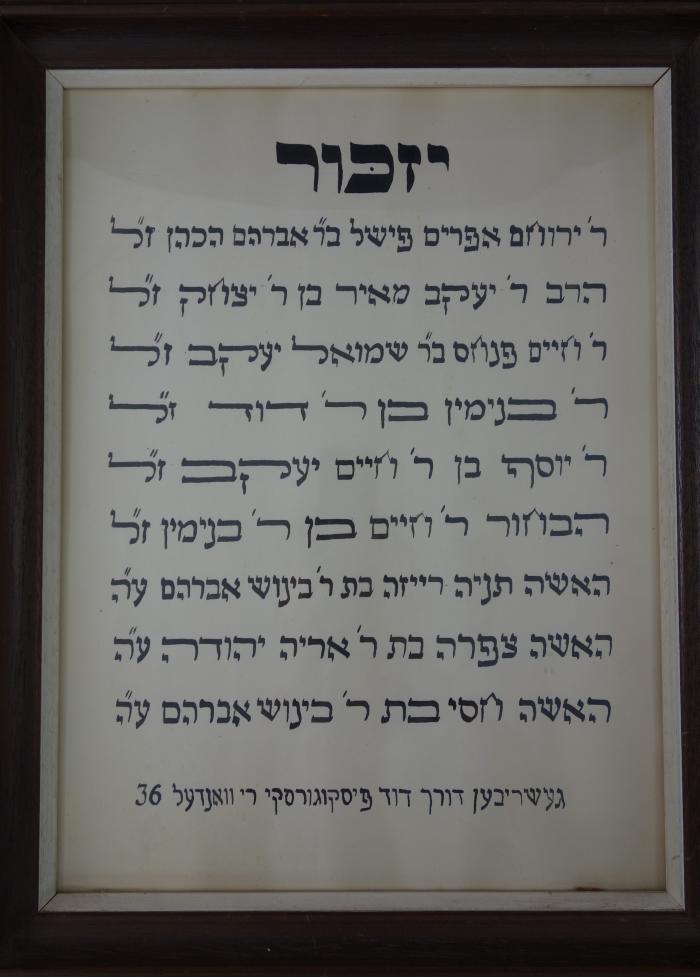 יזכור
ר' ירוחם אפרים פישל ב״ר אברהם הכהן ז״ל
הרב ר' יעקב מאיר בן ר' יצחק ז״ל
ר' חיים פנחס ב״ר שמואל יעקב ז״ל
ר' בנימין בן ר' דוד ז״ל
ר' יוסף בן ר' חיים יעקב ז״ל
הבחור ר' חיים בן ר' בנימין ז״ל
האשה תניה רייזה בת ר' בינוש אברהם ע״ה
האשה צפרה בת ר' אריה יהודה ע״ה
האשה חסי בת ר' בינוש אברהם ע״ה
געשריבען דורך דוד פיסקוגורסקי רי וואנדעל 36